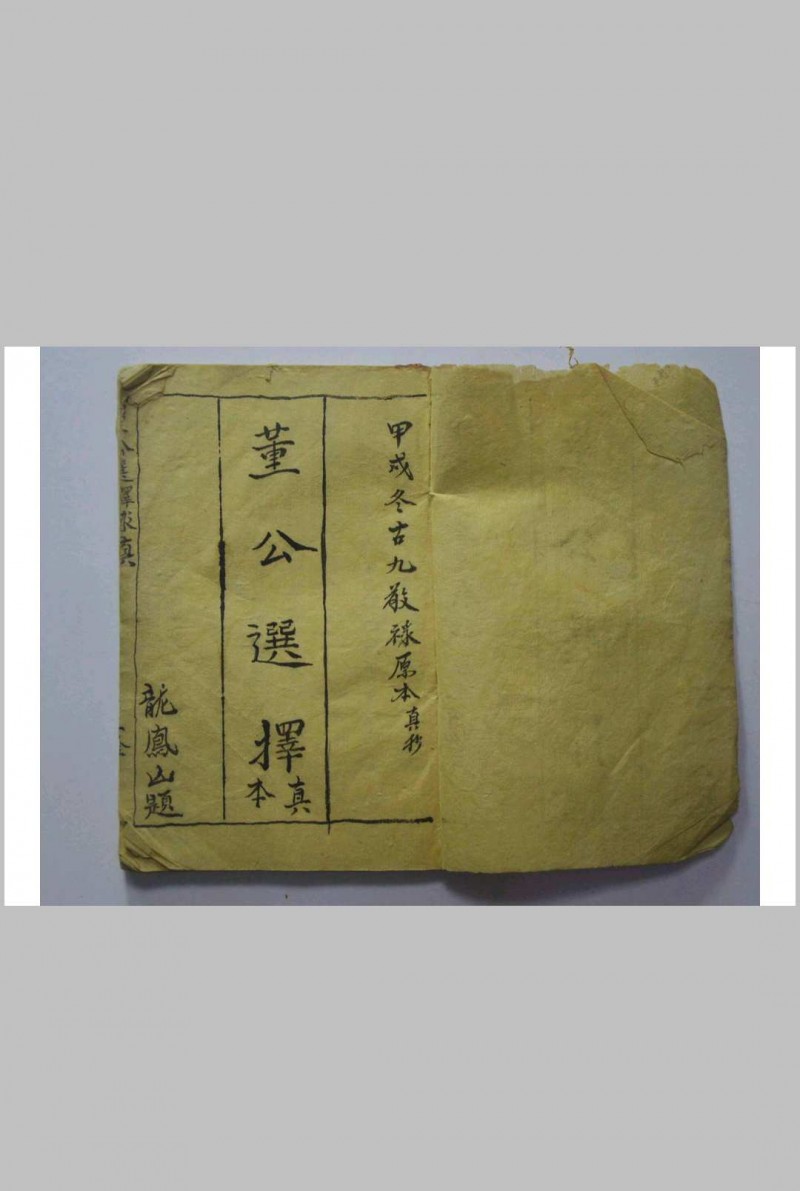 甲戌冬古九敬禄原本真抄
董公選擇真本
龍鳳山題
公選擇
真